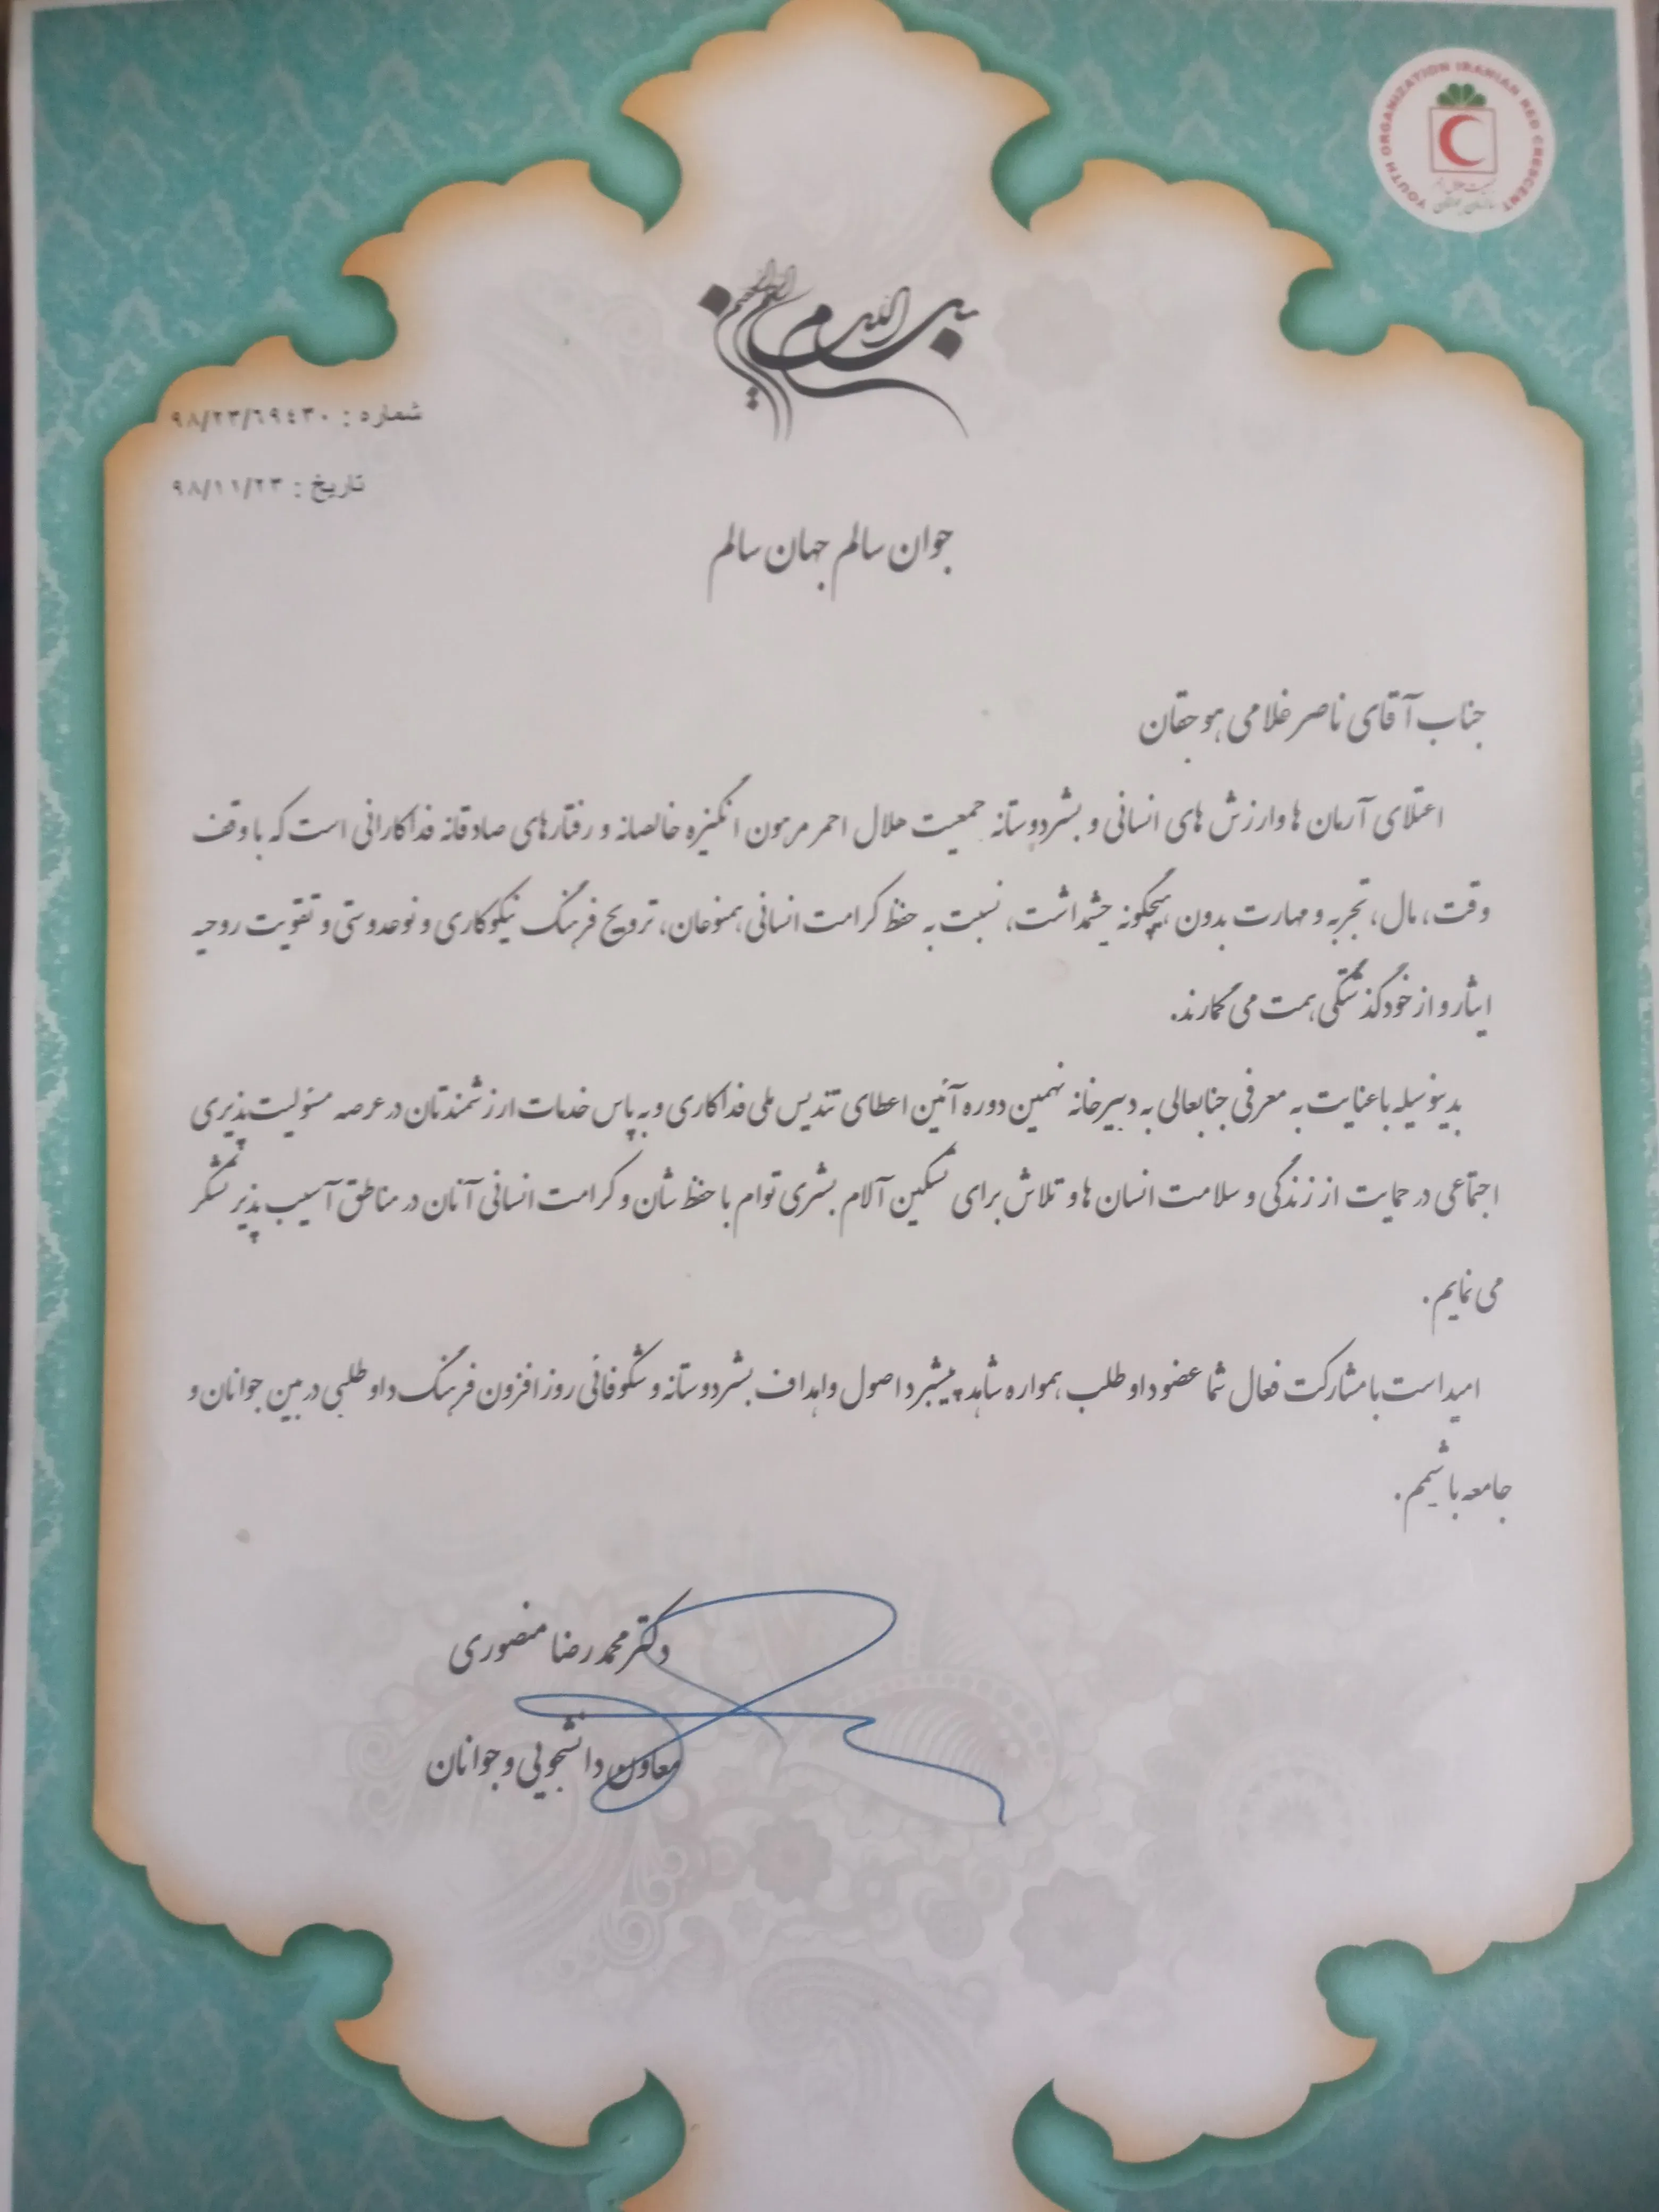 YOUTH ORGANIZATION IRANIAN RED CRESCENT
بسم الله الرحمن الرحیم
شماره : ۹۸/۲۳/۶۹۴۳۰
تاریخ : ۹۸/۱۱/۲۳
جوان سالم جهان سالم
جناب آقای ناصر غلامی هوجقان
اعتلای آرمان ها و ارزش های انسانی و بشردوستانه جمعیت هلال احمر مرهون انگیزه خالصانه و رفتارهای صادقانه فداکارانی است که با وقف
وقت، مال، تجربه و مهارت بدون هیچگونه چشمداشت، نسبت به حفظ کرامت انسانی همنوعان، ترویج فرهنگ نیکوکاری و نوعدوستی و تقویت روحیه
ایثار و از خودگذشتگی همت می گمارند.
بدینوسیله با عنایت به معرفی جنابعالی به دبیرخانه نهمین دوره آئین اعطای تندیس ملی فداکاری و به پاس خدمات ارزشمندتان در عرصه مسئولیت پذیری
اجتماعی در حمایت از زندگی و سلامت انسان ها و تلاش برای تسکین آلام بشری توام با حفظ شان و کرامت انسانی آنان در مناطق آسیب پذیر تشکر
می نمایم.
امید است با مشارکت فعال شما عضو داوطلب همواره شاهد پیشبرد اصول و اهداف بشردوستانه و شکوفائی روزافزون فرهنگ داوطلبی در بین جوانان و
جامعه باشیم.
دکتر محمدرضا منصوری
معاون دانشجویی و جوانان